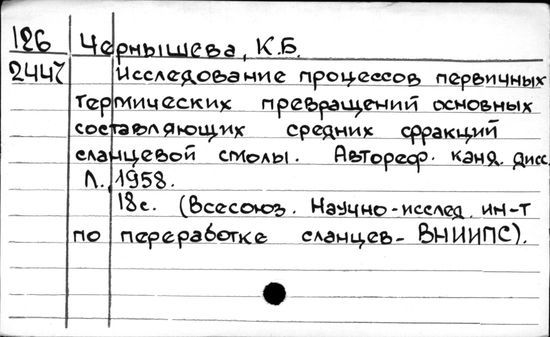 126 Чернышева, К.Б.
2447 Исследование процессов первичных
термических превращений основных
составляющих средних фракций
сланцевой смолы. Автореф. канд. дисс.
Л., 1958.
18с. (Всесоюз. Научно-исслед. ин-т
по переработке сланцев- ВНИИПС).